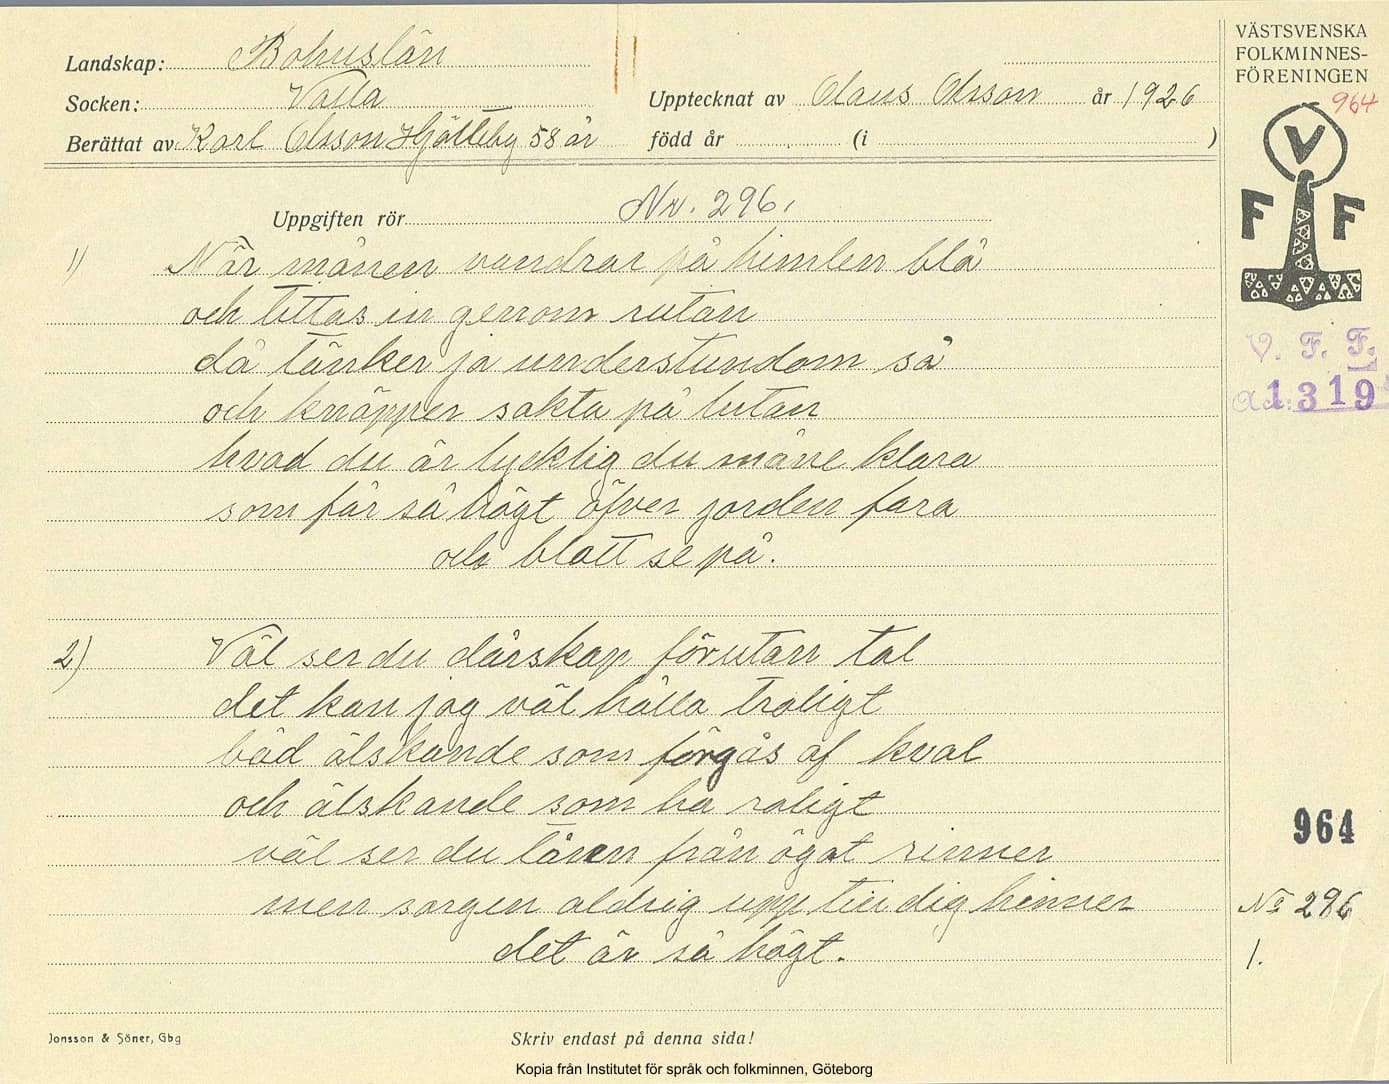 Landskap: Bohuslän
Socken: Valla
Upptecknat av Claus Olsson år 1926
Berättat av Karl Olsson Hjälteby 58 år
född år (i )
Uppgiften rör Nr. 296.
1) När månen vandrar på himlen blå
och tittas in genom rutan
då tänker ja understundom så
och knäpper sakta på lutan
hvad du är lycklig du måne klara
som får så högt öfver jorden fara
och blott se på.
2) Väl ser du dårskap förutan tal
det kan jag väl hålla troligt
båd älskande som förgås af kval
och älskande som ha roligt
väl ser du tåren från ögat rinner
men sorgen aldrig upp till dig hinner
det är så högt.
Jonsson & Söner, Gbg
Skriv endast på denna sida!
Kopia från Institutet för språk och folkminnen, Göteborg
VÄSTSVENSKA
FOLKMINNES-
FÖRENINGEN
964
V
F F
V. F. F.
Acc: 1319
964
No 296
1.